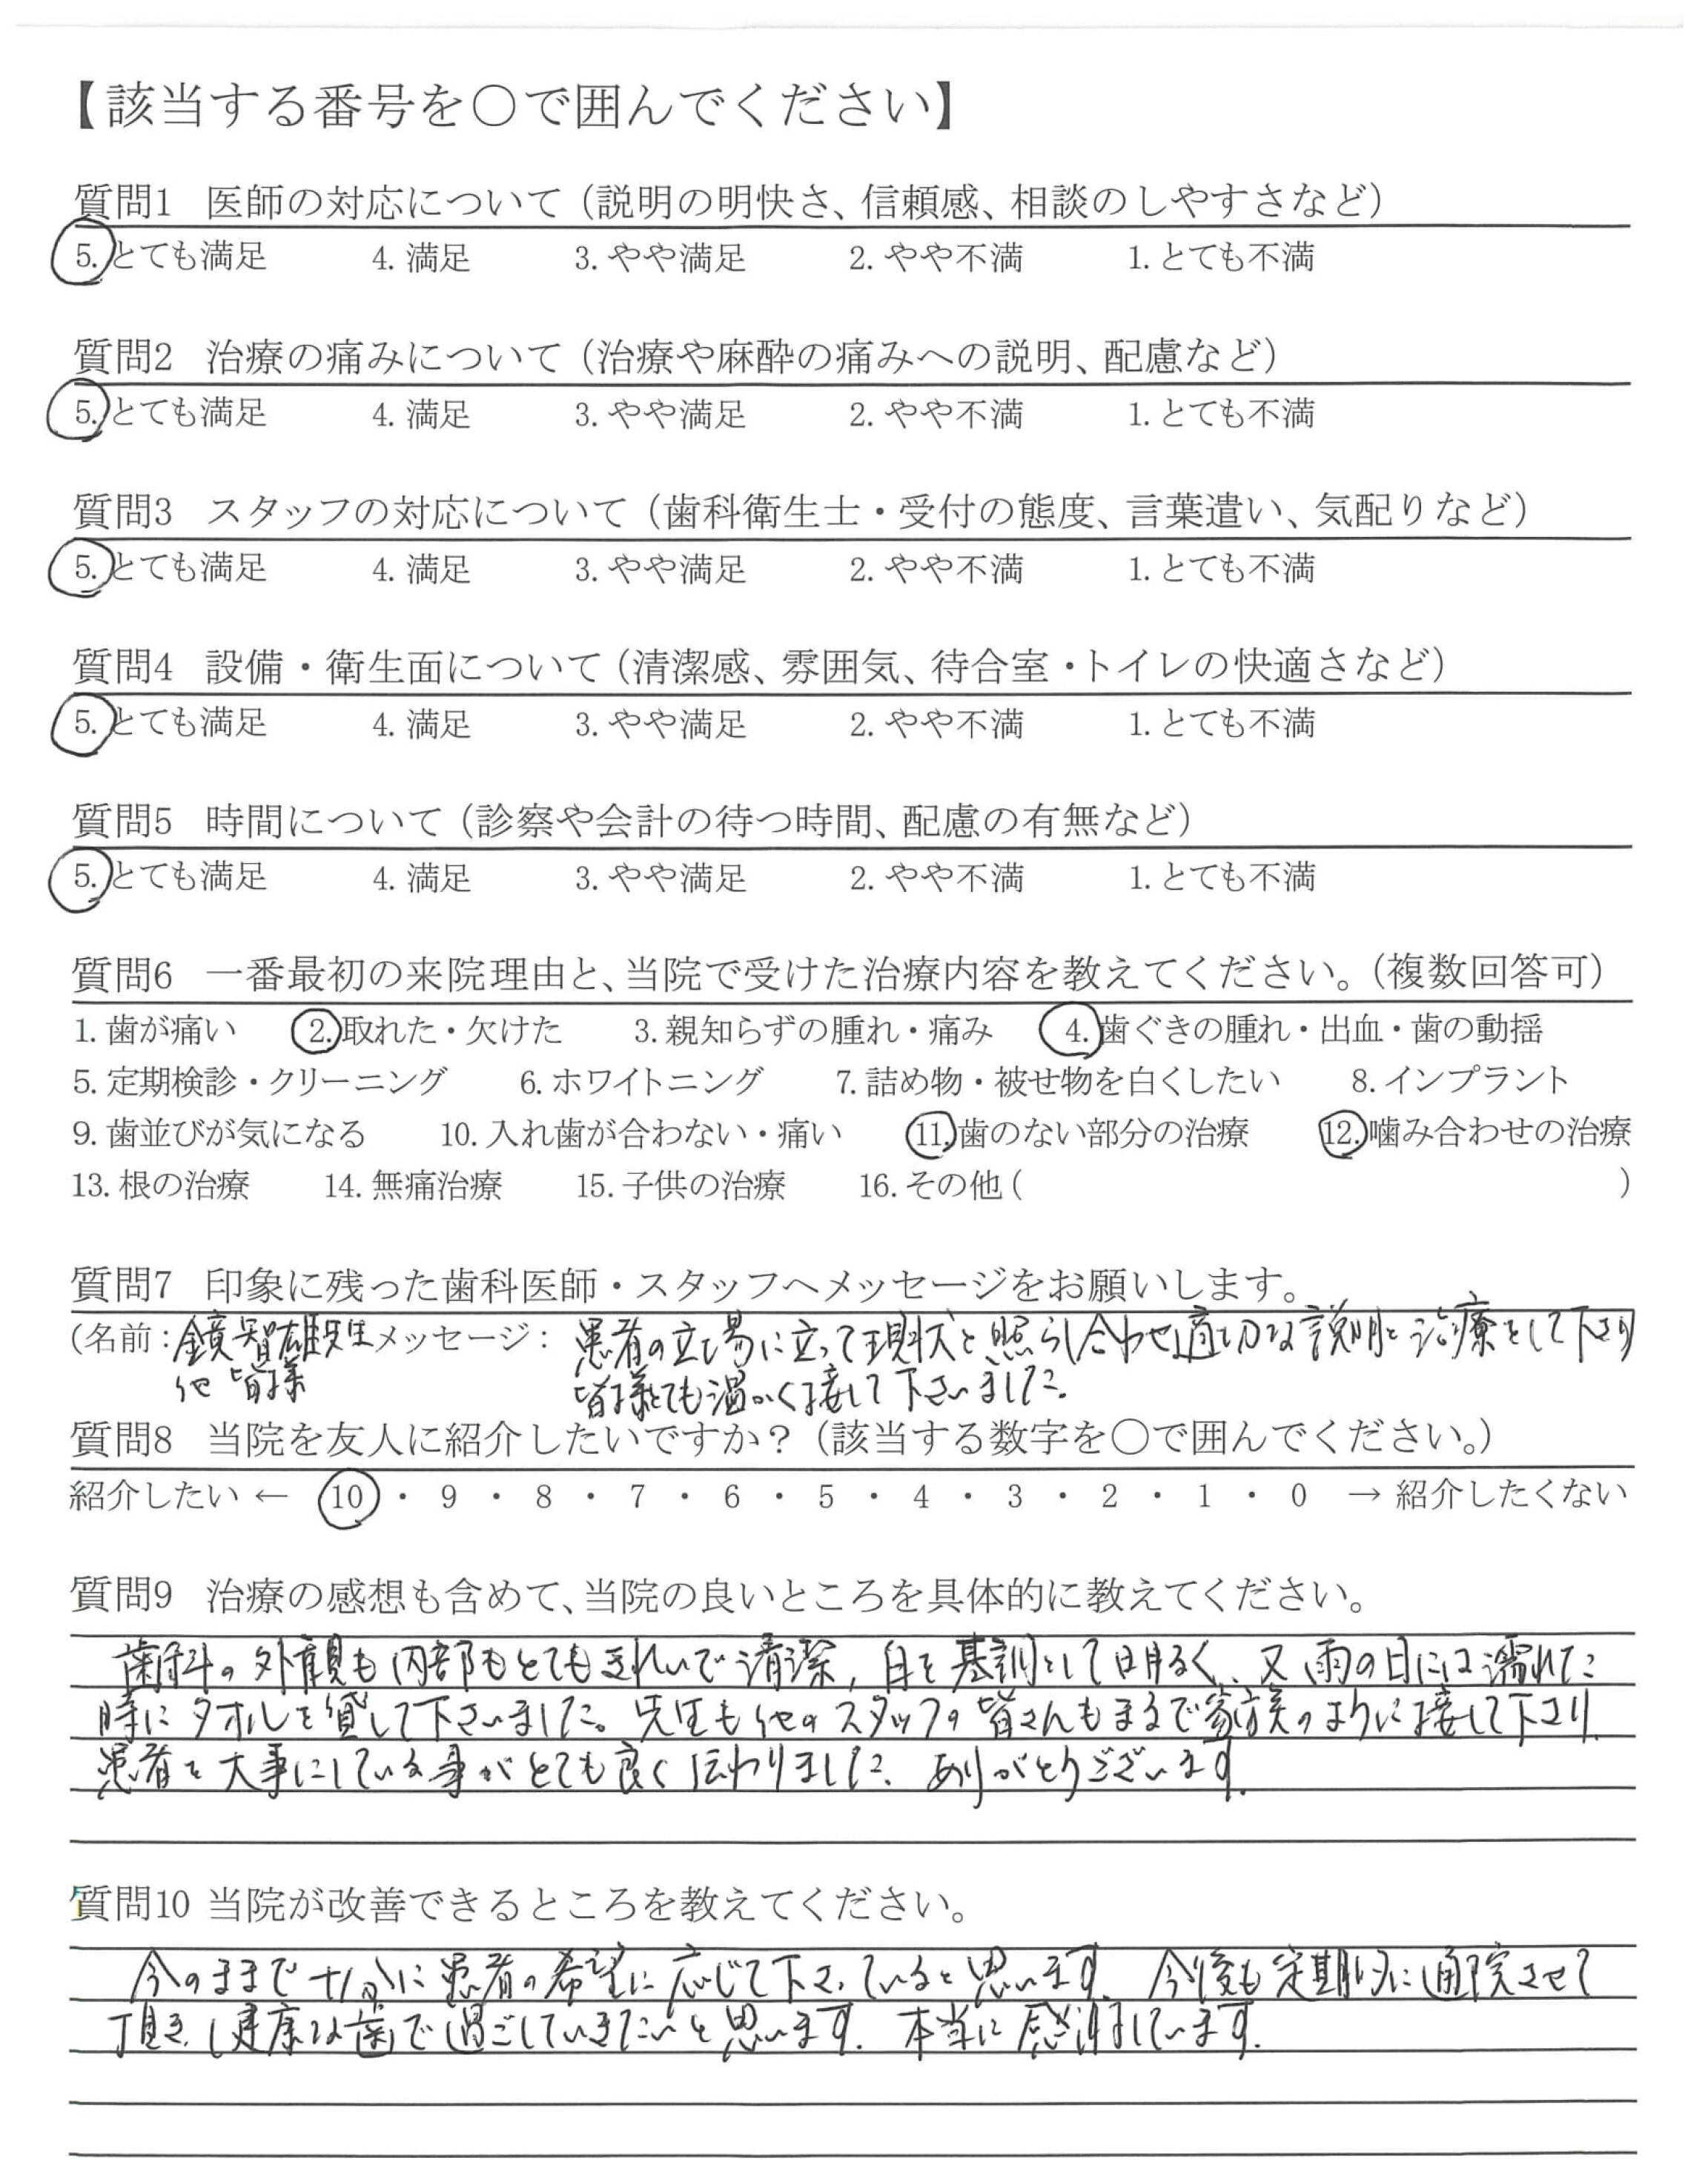 【該当する番号を○で囲んでください】
質問1 医師の対応について（説明の明快さ、信頼感、相談のしやすさなど）
5. とても満足 4. 満足 3. やや満足 2. やや不満 1. とても不満
質問2 治療の痛みについて（治療や麻酔の痛みへの説明、配慮など）
5. とても満足 4. 満足 3. やや満足 2. やや不満 1. とても不満
質問3 スタッフの対応について（歯科衛生士・受付の態度、言葉遣い、気配りなど）
5. とても満足 4. 満足 3. やや満足 2. やや不満 1. とても不満
質問4 設備・衛生面について（清潔感、雰囲気、待合室・トイレの快適さなど）
5. とても満足 4. 満足 3. やや満足 2. やや不満 1. とても不満
質問5 時間について（診察や会計の待つ時間、配慮の有無など）
5. とても満足 4. 満足 3. やや満足 2. やや不満 1. とても不満
質問6 一番最初の来院理由と、当院で受けた治療内容を教えてください。（複数回答可）
1. 歯が痛い 2. 取れた・欠けた 3. 親知らずの腫れ・痛み 4. 歯ぐきの腫れ・出血・歯の動揺
5. 定期検診・クリーニング 6. ホワイトニング 7. 詰め物・被せ物を白くしたい 8. インプラント
9. 歯並びが気になる 10. 入れ歯が合わない・痛い 11. 歯のない部分の治療 12. 噛み合わせの治療
13. 根の治療 14. 無痛治療 15. 子供の治療 16. その他（ ）
質問7 印象に残った歯科医師・スタッフへメッセージをお願いします。
（名前：鏡智雄先生 メッセージ：患者の立場に立って現状と照らし合わせ適切な説明と治療をして下さり
他 皆様 皆様とても温かく接して下さいました。
質問8 当院を友人に紹介したいですか？（該当する数字を○で囲んでください。）
紹介したい ← 10 ・ 9 ・ 8 ・ 7 ・ 6 ・ 5 ・ 4 ・ 3 ・ 2 ・ 1 ・ 0 → 紹介したくない
質問9 治療の感想も含めて、当院の良いところを具体的に教えてください。
歯科の外観も内部もとてもきれいで清潔、白を基調として明るく、又、雨の日には濡れた
時にタオルを貸して下さいました。先生も他のスタッフの皆さんもまるで家族のように接して下さり、
患者を大事にしている事がとても良く伝わりました。ありがとうございます。
質問10 当院が改善できるところを教えてください。
今のままで十分に患者の希望に応じて下さっていると思います。今後も定期的に通院させて
頂き、健康な歯で過ごしていきたいと思います。本当に感謝しています。